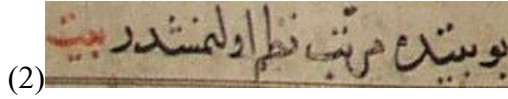 بو بیتده مرتب نظم اولنمشدر بیت
(2)